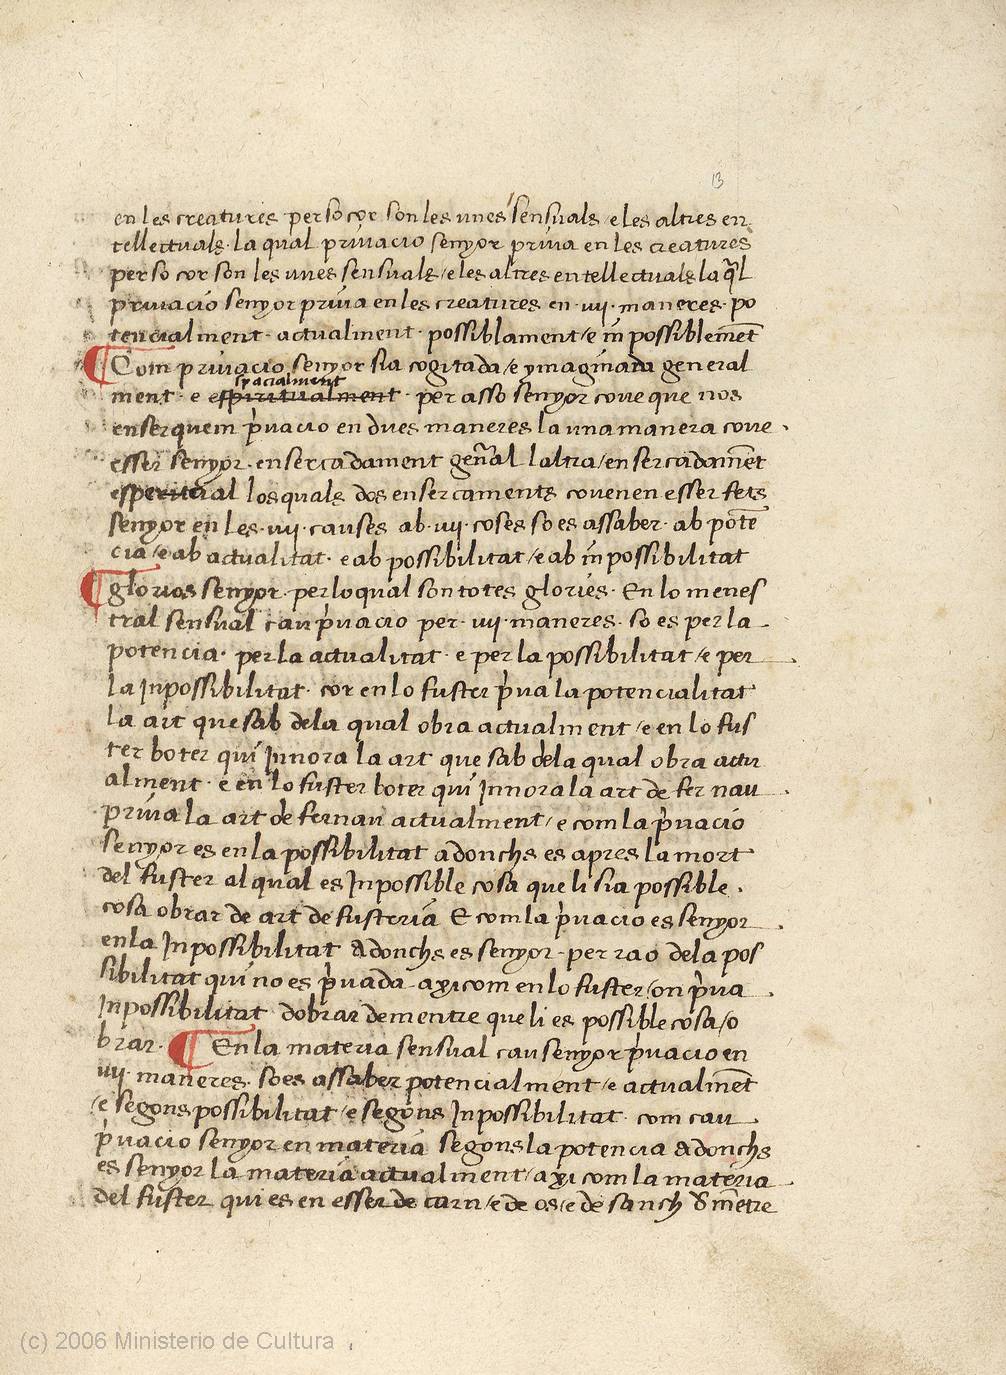 13
en les creatures per so cor son les unes sensuals / e les altres en
tellectuals · la qual privacio senyor priva en les creatures
per so cor son les unes sensuals / e les altres entellectuals la q̃l
privacio senyor priva en les creatures en · iiij · maneres · po
tencialment · actualment · possiblament / e īpossiblemēt
¶ Com privacio senyor sia cogitada / e ymaginada general
spacialment
ment · e espiritualment · per asso senyor coue que nos
enserquem p̉vacio en dues maneres la una manera coue ·
esser senyor · ensercadament gen̄al laltra / ensercadamēt
esperitial los quals dos ensercaments covenen esser fets
senyor en les · iiij · causes ab · iiij · coses so es assaber · ab potē
cia / e ab actualitat · e ab possibilitat / e ab īpossibilitat
¶ glorios senyor · per lo qual son totes glories · En lo menes
tral sensual cau p̉vacio per · iiij · maneres · so es per la
potencia · per la actualitat · e per la possibilitat / e per
la Inpossibilitat · cor en lo fuster p̉va la potencialitat
la art que sab de la qual obra actualment / e en lo fus
ter boter qui Innora la art que sab de la qual obra actu
alment · e en lo fuster boter qui Innora la art de fer nau
priva la art de fer nau actualment / e com la p̉vacio
senyor es en la possibilitat adonchs es apres la mort
del fuster al qual es Inpossible cosa que li sia possible ·
cosa obrar de art de fusteria E com la p̉vacio es senyor
en la Inpossibilitat adonchs es senyor · per rao de la pos
sibilitat qui no es p̉vada axi com en lo fuster / on p̉va
Inpossibilitat dobrar dementre que li es possible cosa / o
brar · ¶ En la materia sensual cau senyor p̉vacio en
iiij · maneres · so es assaber potencialment / e actualmēt
/ e segons possibilitat / e segons Inpossibilitat · com cau
p̉vacio senyor en materia segons la potencia adonchs
es senyor la materia actualment / axi com la materia
del fuster qui es en esser de carn / e de os / e de sanch
(c) 2006 Ministerio de Cultura